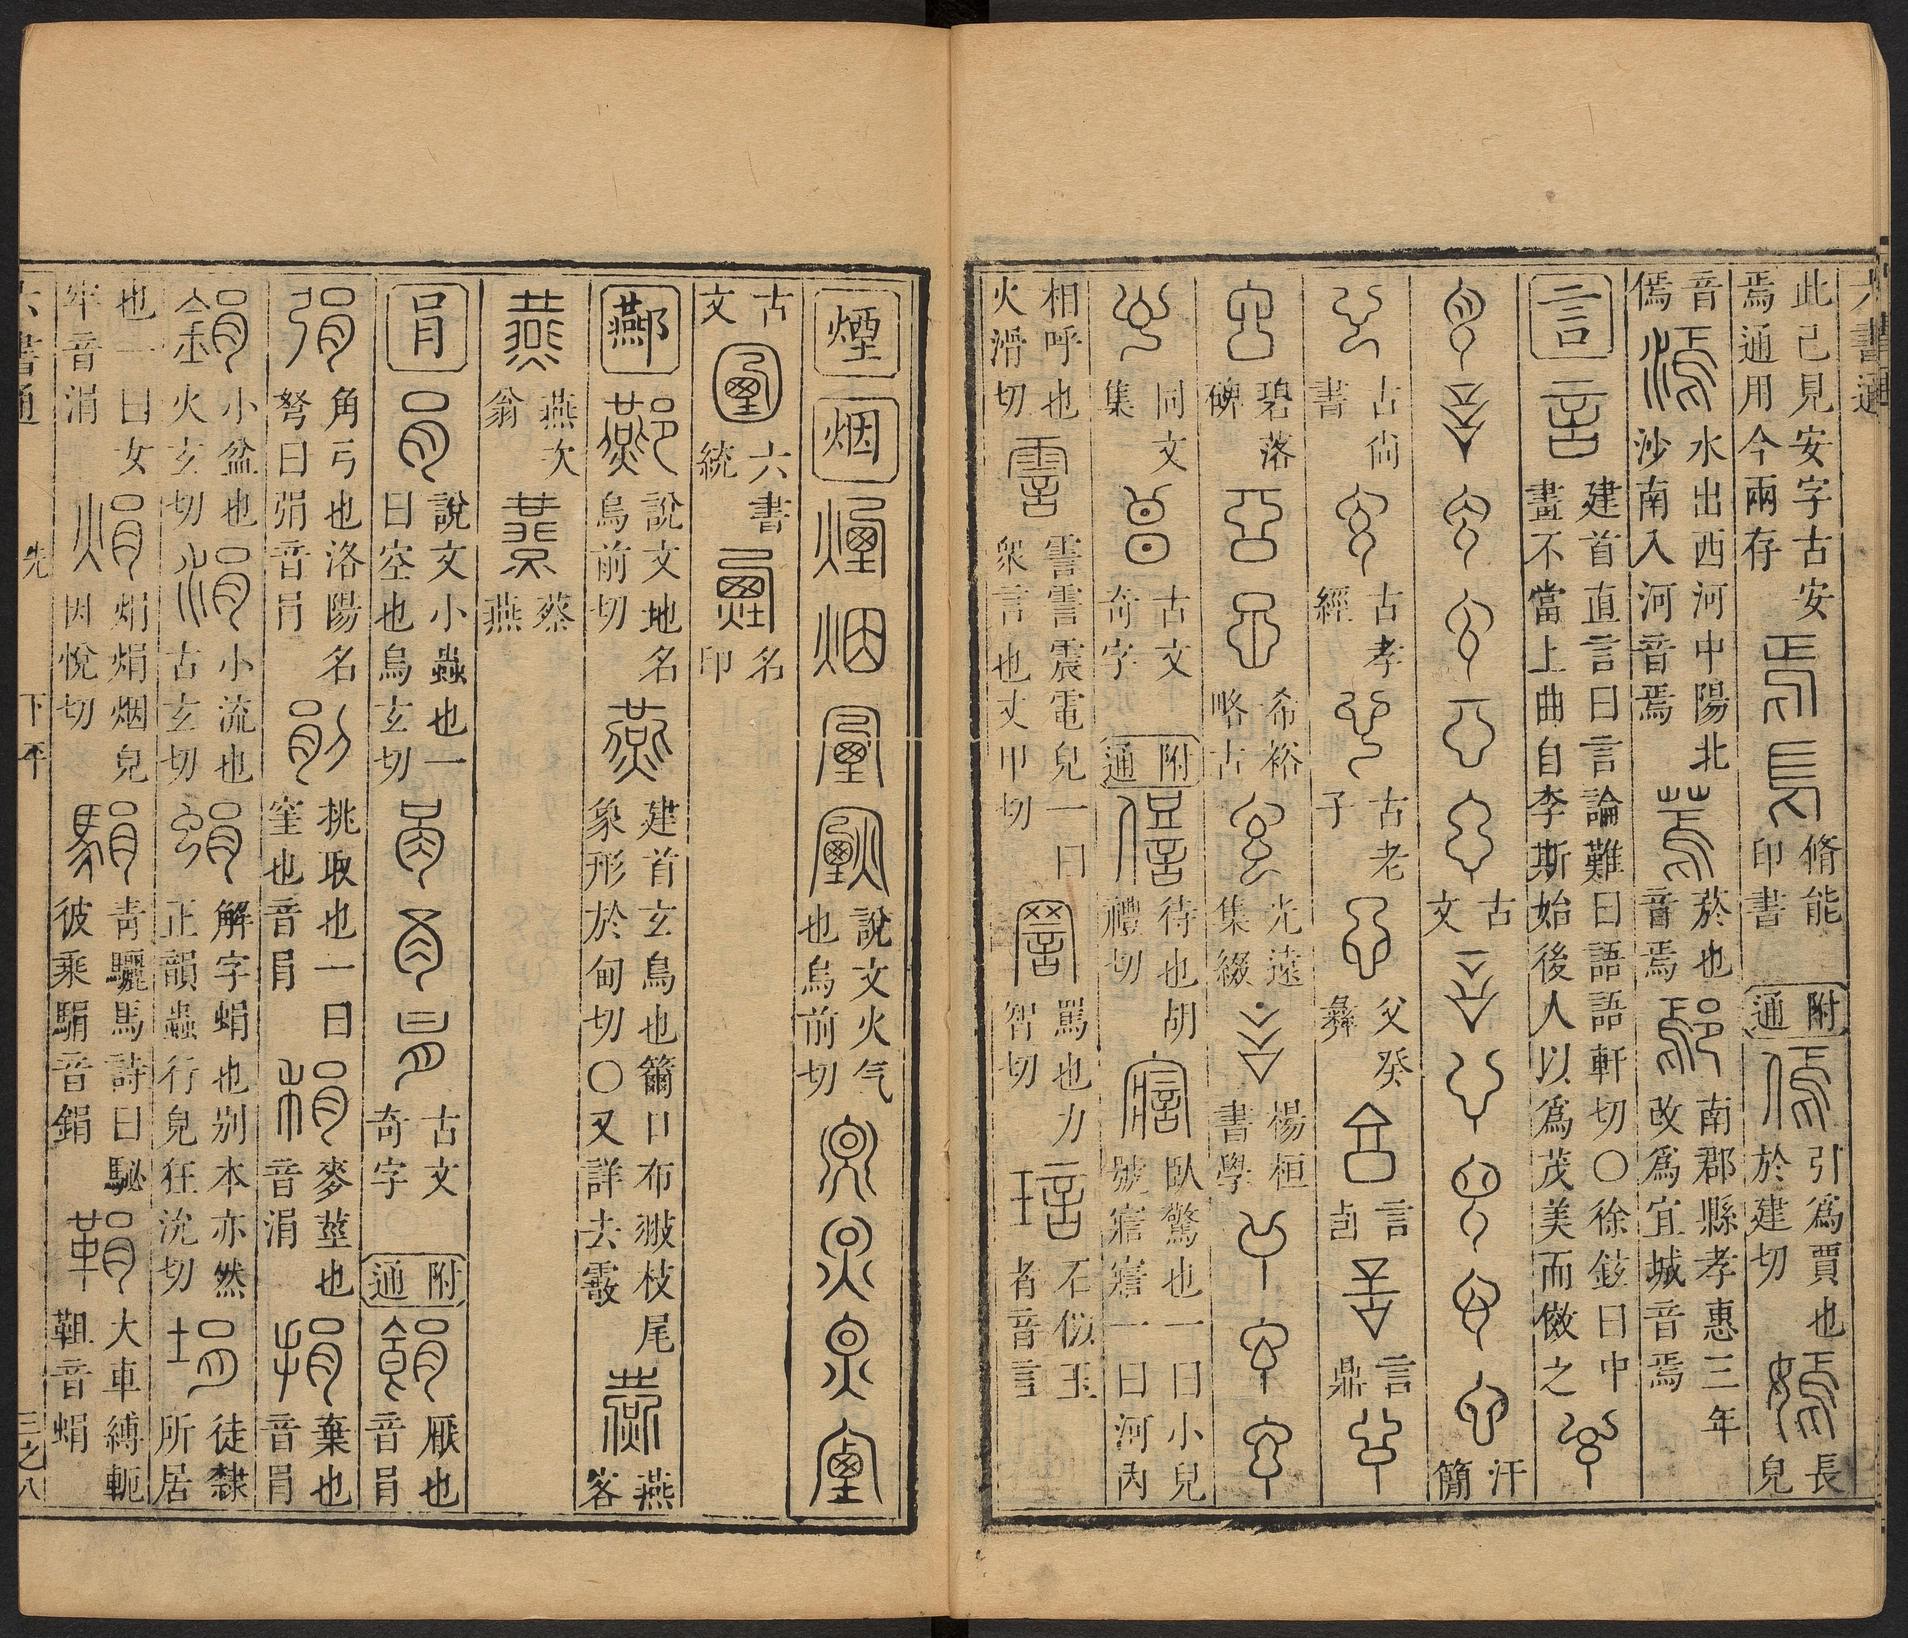 六書通
此已見安字古安
焉通用今兩存
脩能
印書
附通
引爲賈也
於建切
長
皃
音
傿
水出西河中陽北
沙南入河音焉
菸也
音焉
南郡縣孝惠三年
改爲宜城音焉
言
建首直言曰言論難曰語語軒切○徐鉉曰中
畫不當上曲自李斯始後人以爲茂美而倣之
古文
汗簡
古尚書
古孝經
古老子
父癸彝
言卣
言鼎
碧落碑
希裕略古
光遠集綴
楊桓書學
同文集
古文奇字
附通
待也胡禮切
臥驚也一曰小兒
號寣寣一曰河內
相呼也
火滑切
䨓䨓震電皃一曰
衆言也丈甲切
罵也力智切
石似玉者音言
煙
烟
說文火气
也烏前切
古文
六書統
古名印
酀
說文地名
烏前切
建首玄鳥也籋口布翄枝尾
象形於甸切○又詳去霰
燕客
燕次翁
蔡燕
肙
說文小蟲也一
曰空也烏玄切
古文奇字
附通
厭也
音肙
角弓也洛陽名
弩曰弲音肙
挑取也一曰
窐也音肙
麥莖也
音涓
棄也
音肙
小盆也
火玄切
小流也
古玄切
解字蜎也别本亦然
正韻蟲行皃狂沇切
徒隸
所居
也一曰女
牢音涓
焆焆烟皃
因悅切
青驪馬詩曰駜
彼乘駽音鋗
大車縛軛
靼音蜎
六書通
先
下平
三之八